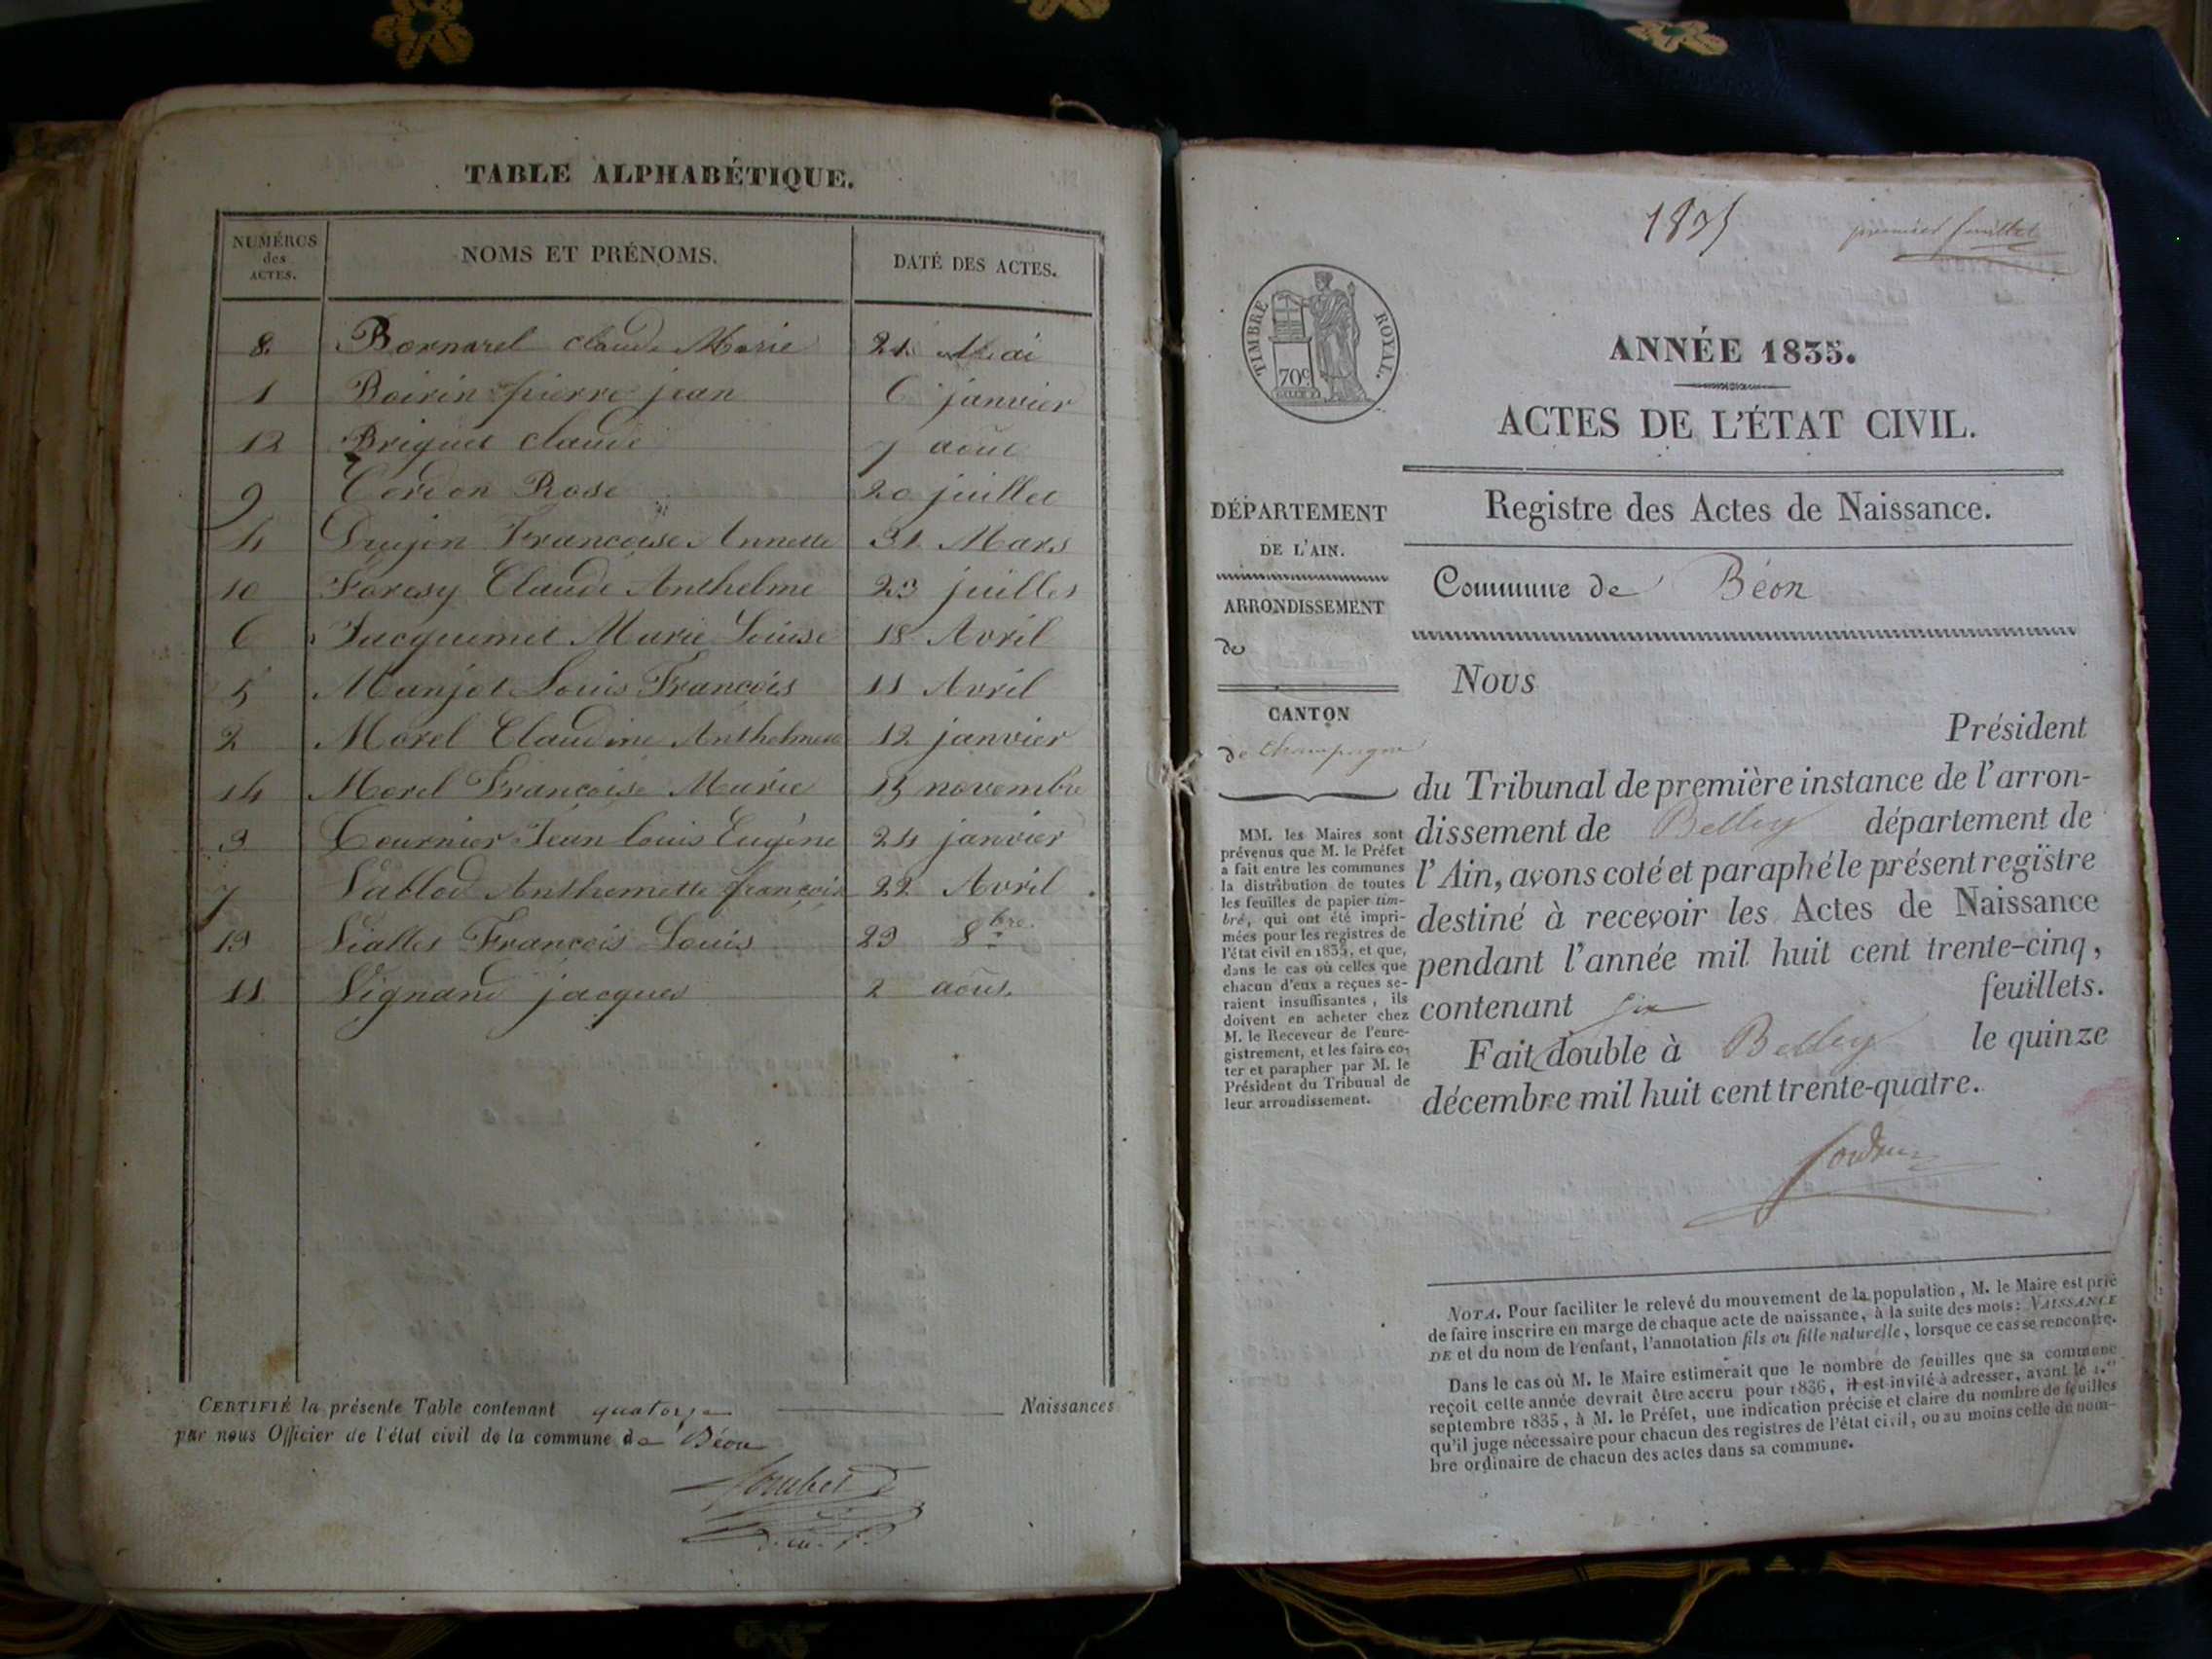 TABLE ALPHABÉTIQUE.
NUMÉROS des ACTES.
NOMS ET PRÉNOMS.
DATE DES ACTES.
8. Bornarel claude Marie 21 Mai
1 Boirin pierre jean 6 janvier
12 Briquet claude 7 août
9 Cordon Rose 20 juillet
4 Drujon Francoise Annette 31 Mars
10 Foresy Claude Anthelme 23 juillet
6 Jacquemet Marie Louise 18 Avril
5 Manjot Louis François 11 Avril
2 Morel Claudine Anthelmette 12 janvier
14 Morel Françoise Marie 13 novembre
3 Tournier Jean louis Eugène 24 janvier
7 Vallod Anthemette françoise 22 Avril
13 Viallet François Louis 23 8bre
11 Vignand jacques 2 août
CERTIFIÉ la présente Table contenant quatorze Naissances
par nous Officier de l'état civil de la commune de Béon
1835
premier feuillet
TIMBRE ROYAL.
70c
ANNÉE 1835.
ACTES DE L'ÉTAT CIVIL.
Registre des Actes de Naissance.
DÉPARTEMENT
DE L'AIN.
ARRONDISSEMENT
de
CANTON
de Champagne
MM. les Maires sont
prévenus que M. le Préfet
a fait entre les communes
la distribution de toutes
les feuilles de papier tim-
bré, qui ont été impri-
mées pour les registres de
l'état civil en 1835, et que,
dans le cas où celles que
chacun d'eux a reçues se-
raient insuffisantes, ils
doivent en acheter chez
M. le Receveur de l'enre-
gistrement, et les faire co-
ter et parapher par M. le
Président du Tribunal de
leur arrondissement.
Commune de Béon
Nous
Président
du Tribunal de première instance de l'arron-
dissement de Belley département de
l'Ain, avons coté et paraphé le présent registre
destiné à recevoir les Actes de Naissance
pendant l'année mil huit cent trente-cinq,
contenant six feuillets.
Fait double à Belley le quinze
décembre mil huit cent trente-quatre.
NOTA. Pour faciliter le relevé du mouvement de la population, M. le Maire est prié
de faire inscrire en marge de chaque acte de naissance, à la suite des mots: NAISSANCE
DE et du nom de l'enfant, l'annotation fils ou fille naturelle, lorsque ce cas se rencontre.
Dans le cas où M. le Maire estimerait que le nombre de feuilles que sa commune
reçoit cette année devrait être accru pour 1836, il est invité à adresser, avant le 1.er
septembre 1835, à M. le Préfet, une indication précise et claire du nombre de feuilles
qu'il juge nécessaire pour chacun des registres de l'état civil, ou au moins celle du nom-
bre ordinaire de chacun des actes dans sa commune.